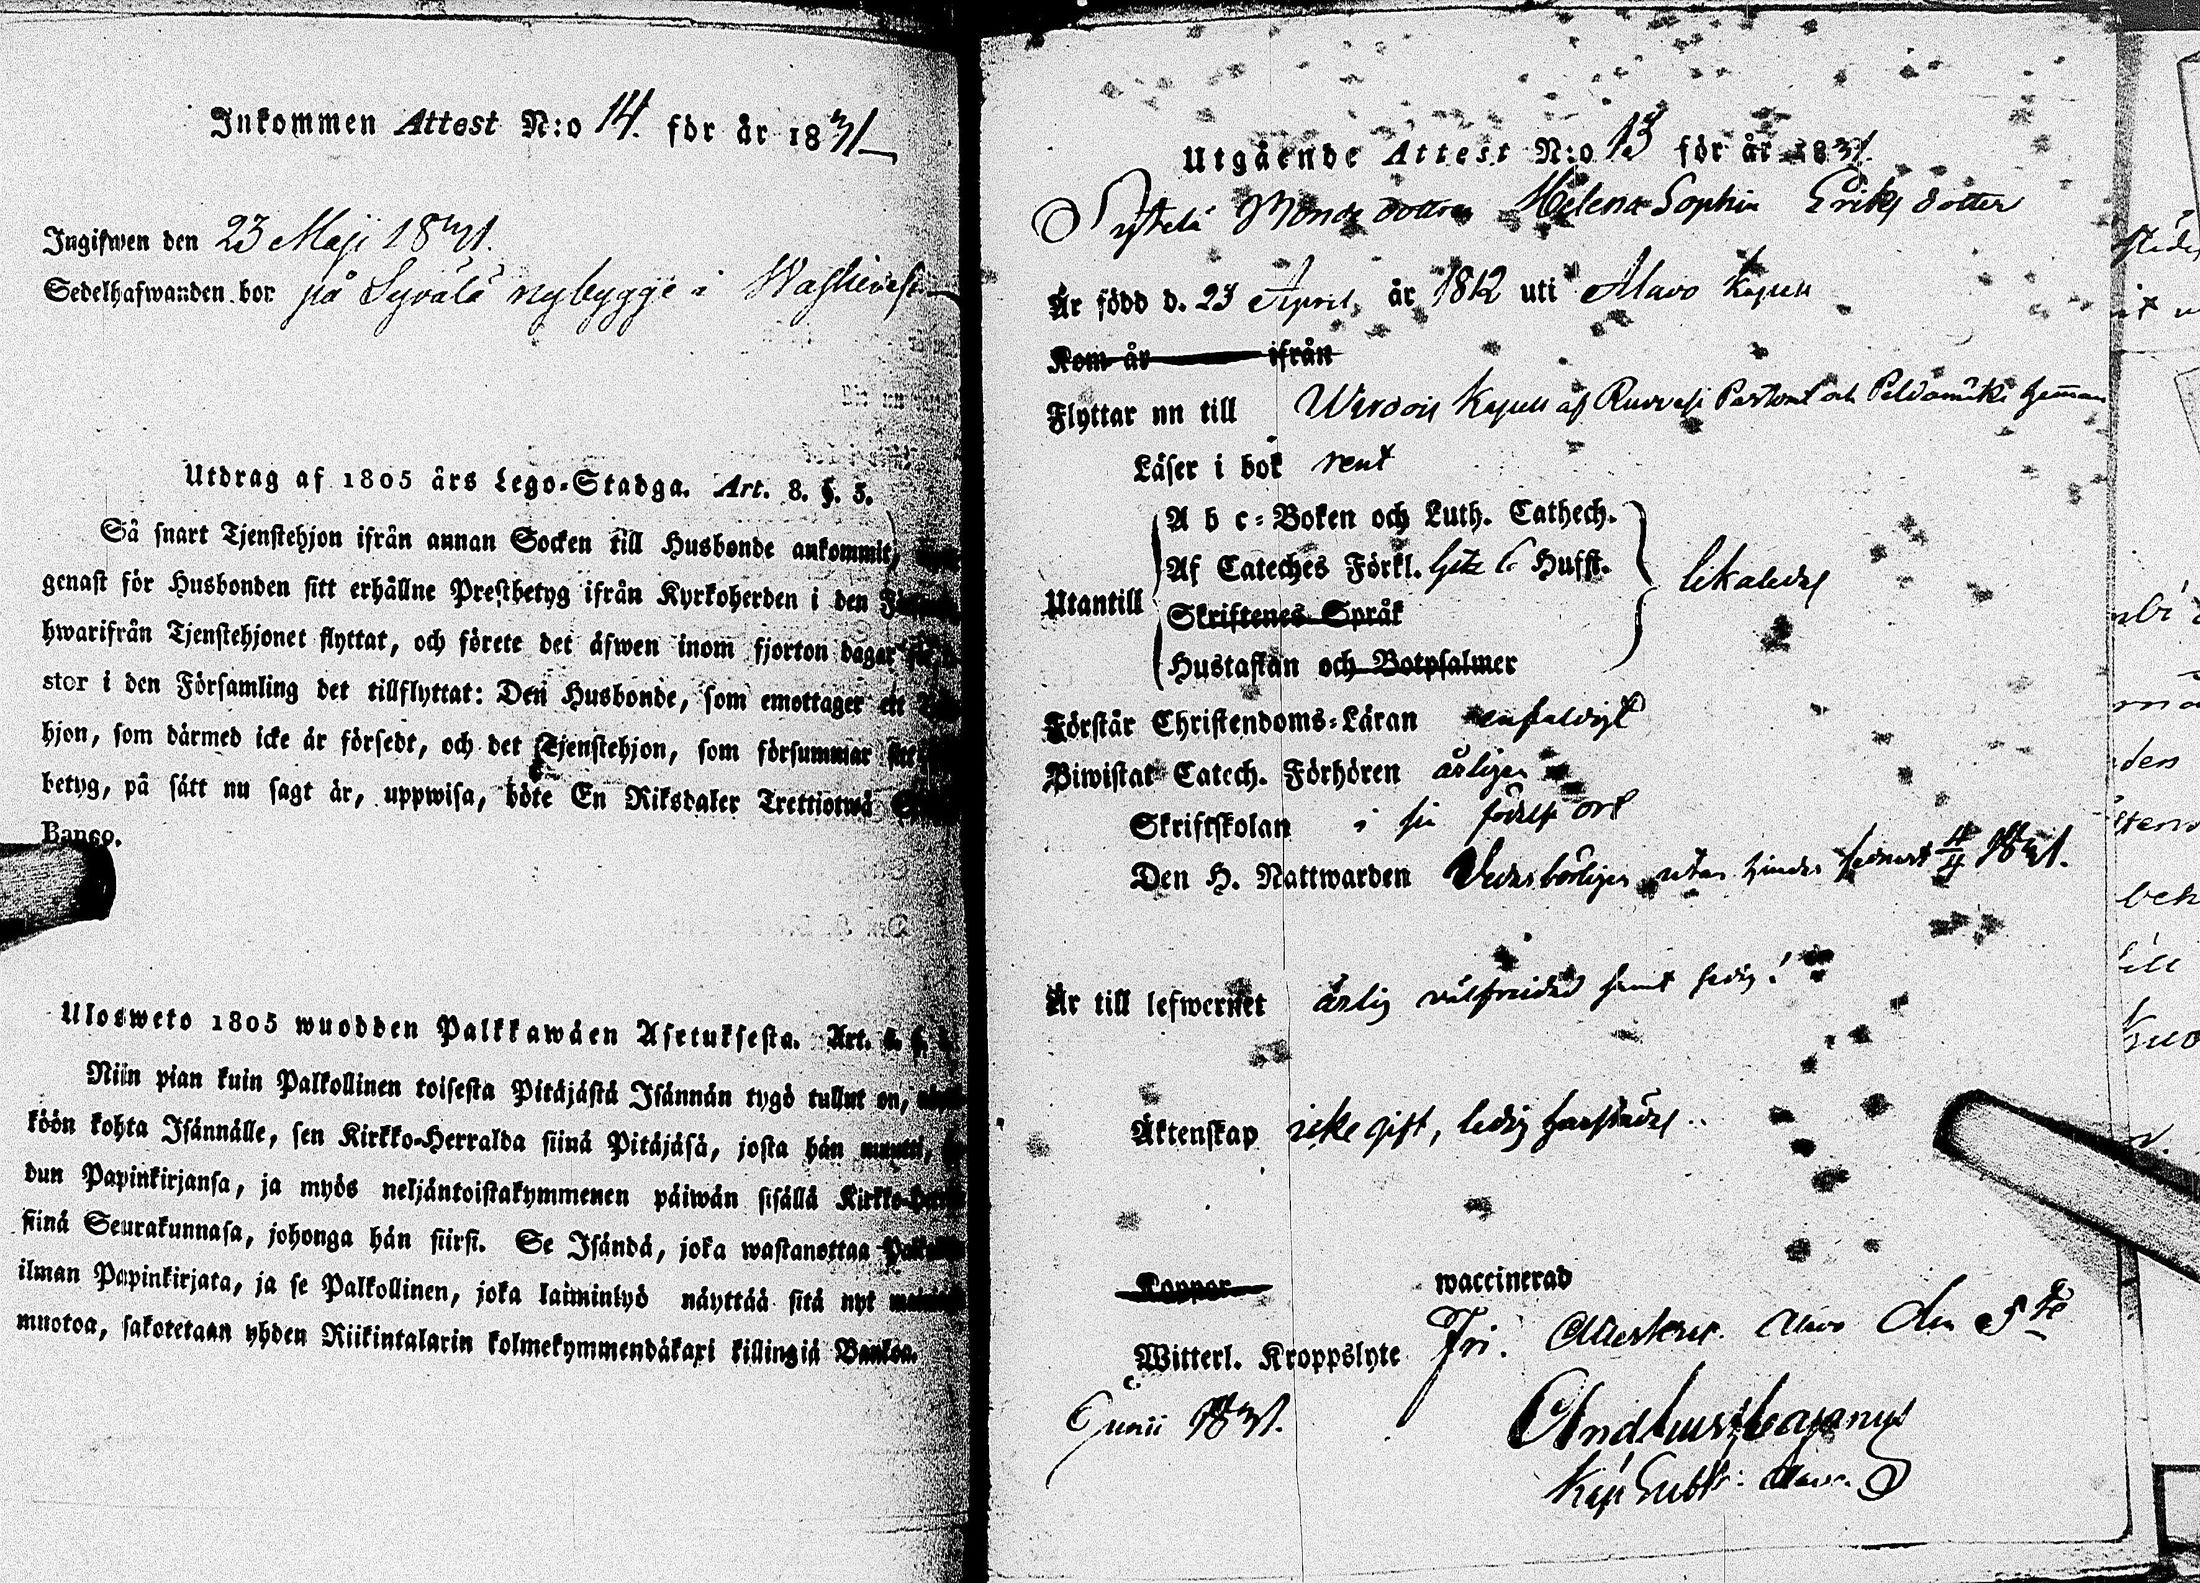 Inkommen Attest N:o 14. för år 1831
Ingifwen den 23 Maji 1831.
Sedelhafwanden bor på Syvälä nybygge i
Utdrag af 1805 års Lego-Stadga. Art. 8. §. 5.
Så snart Tjenstehjon ifrån annan Socken till Husbonde ankommit,
genast för Husbonden sitt erhållne Prestbetyg ifrån Kyrkoherden i den
hwarifrån Tjenstehjonet flyttat, och förete det äfwen inom fjorton dagar
stor i den Församling det tillflyttat: Den Husbonde, som emottager ett
hjon, som därmed icke är försedt, och det Tjenstehjon, som försummar
betyg, på sätt nu sagt är, uppwisa, böte En Riksdaler Trettiotwå
Banco.
Ulosweto 1805 wuodden Palkkawäen Asetuksesta. Art.
Niin pian kuin Palkollinen toisesta Pitäjästä Isännän tygö tullut on,
köön kohta Isännälle, sen Kirkko-Herralda siinä Pitäjäsä, josta hän muutti,
dun Papinkirjansa, ja myös neljäntoistakymmenen päiwän sisällä
siinä Seurakunnasa, johonga hän siirsi. Se Isändä, joka wastanottaa
ilman Papinkirjata, ja se Palkollinen, joka laiminlyö näyttää sitä nyt
muotoa, sakotetaan yhden Riikintalarin kolmekymmendäkaxi killingiä Bankoa.
Utgående Attest N:o 13 för år 1831.
Helena Sophia Eriks dotter
Är född d. 23 April, år 1812 uti Alavo Kapell
Kom år ifrån
Flyttar nu till Wirdois Kapell af Ruovesi Pastorat och
Läser i bok rent
A b c-Boken och Luth. Cathech.
Af Cateches Förkl. Hufst.
Utantill likaledes
Skriftenes Språk
Hustaflan och Botpsalmer
Förstår Christendoms-Läran enfaldigt
Biwistat Catech. Förhören årligen
Skriftskolan i sin födelse ort
Den H. Nattwarden Vederbörligen, utan hinder 1831.
Är till lefwernet ärlig välfrejdad samt
Äktenskap icke gift, ledig
Koppor waccinerad
Witterl. Kroppslyte Fri. Alavo den 5te
Junii 1831.